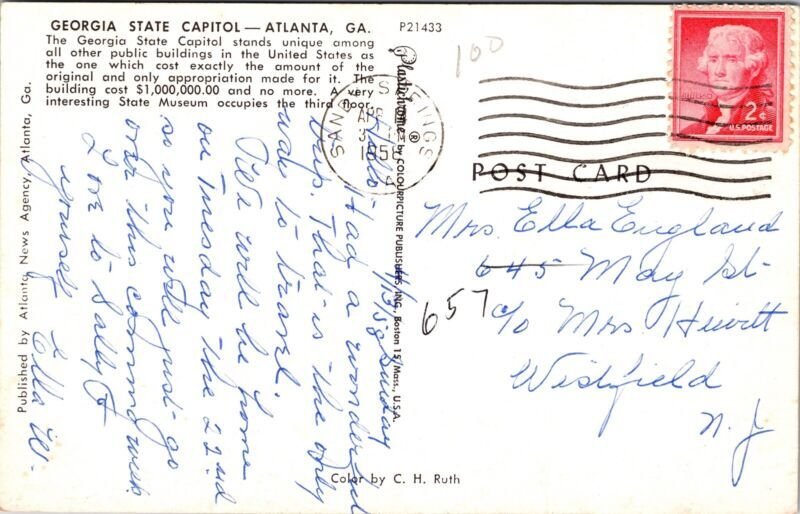 GEORGIA STATE CAPITOL — ATLANTA, GA.
The Georgia State Capitol stands unique among
all other public buildings in the United States as
the one which cost exactly the amount of the
original and only appropriation made for it. The
building cost $1,000,000.00 and no more. A very
interesting State Museum occupies the third floor.
P21433
100
Published by Atlanta News Agency, Atlanta, Ga.
Plastichrome ® by COLOURPICTURE PUBLISHERS, INC., Boston 15, Mass., U.S.A.
SAND SPRINGS
APR
1958
2¢
U.S. POSTAGE
POST CARD
4/13/58 Sunday
Hello-
Had a wonderful
trip. That is the only
way to travel.
We will be home
on Tuesday the 22nd
so you will just go
over this coming week
Love to Sally &
yourself
Ella W.
Mrs. Ella England
645 May St-
657
c/o Mrs Hewitt
Westfield
N. J
Color by C. H. Ruth